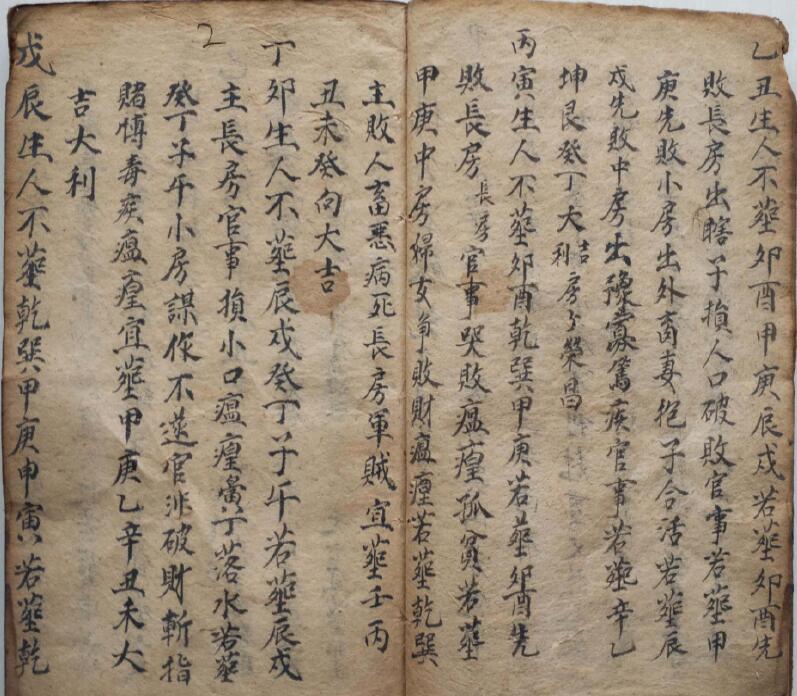 乙丑生人不葬卯酉甲庚辰戌若葬卯酉先
敗長房出瞎子損人口破敗官事若葬甲
庚先敗小房出外畜妻抱子合活若葬辰
戌先敗中房出寡篤疾官事若葬辛乙
坤艮癸丁大吉利房房榮昌
丙寅生人不葬卯酉乾巽甲庚若葬卯酉先
敗長房長房官事哭敗瘟瘽孤貧若葬
甲庚中房婦女争敗財瘟瘽若葬乾巽
主敗人畜悪病死長房軍賊宜葬壬丙
丑未癸向大吉
2
丁卯生人不葬辰戌癸丁子午若葬辰戌
主長房官事損小口瘟瘽丁落水若葬
癸丁子午小房謀作不遂官非破財斬指
賭愽毒疾瘟瘽宜葬甲庚乙辛丑未大
吉大利
戊辰生人不葬乾巽甲庚申寅若葬乾